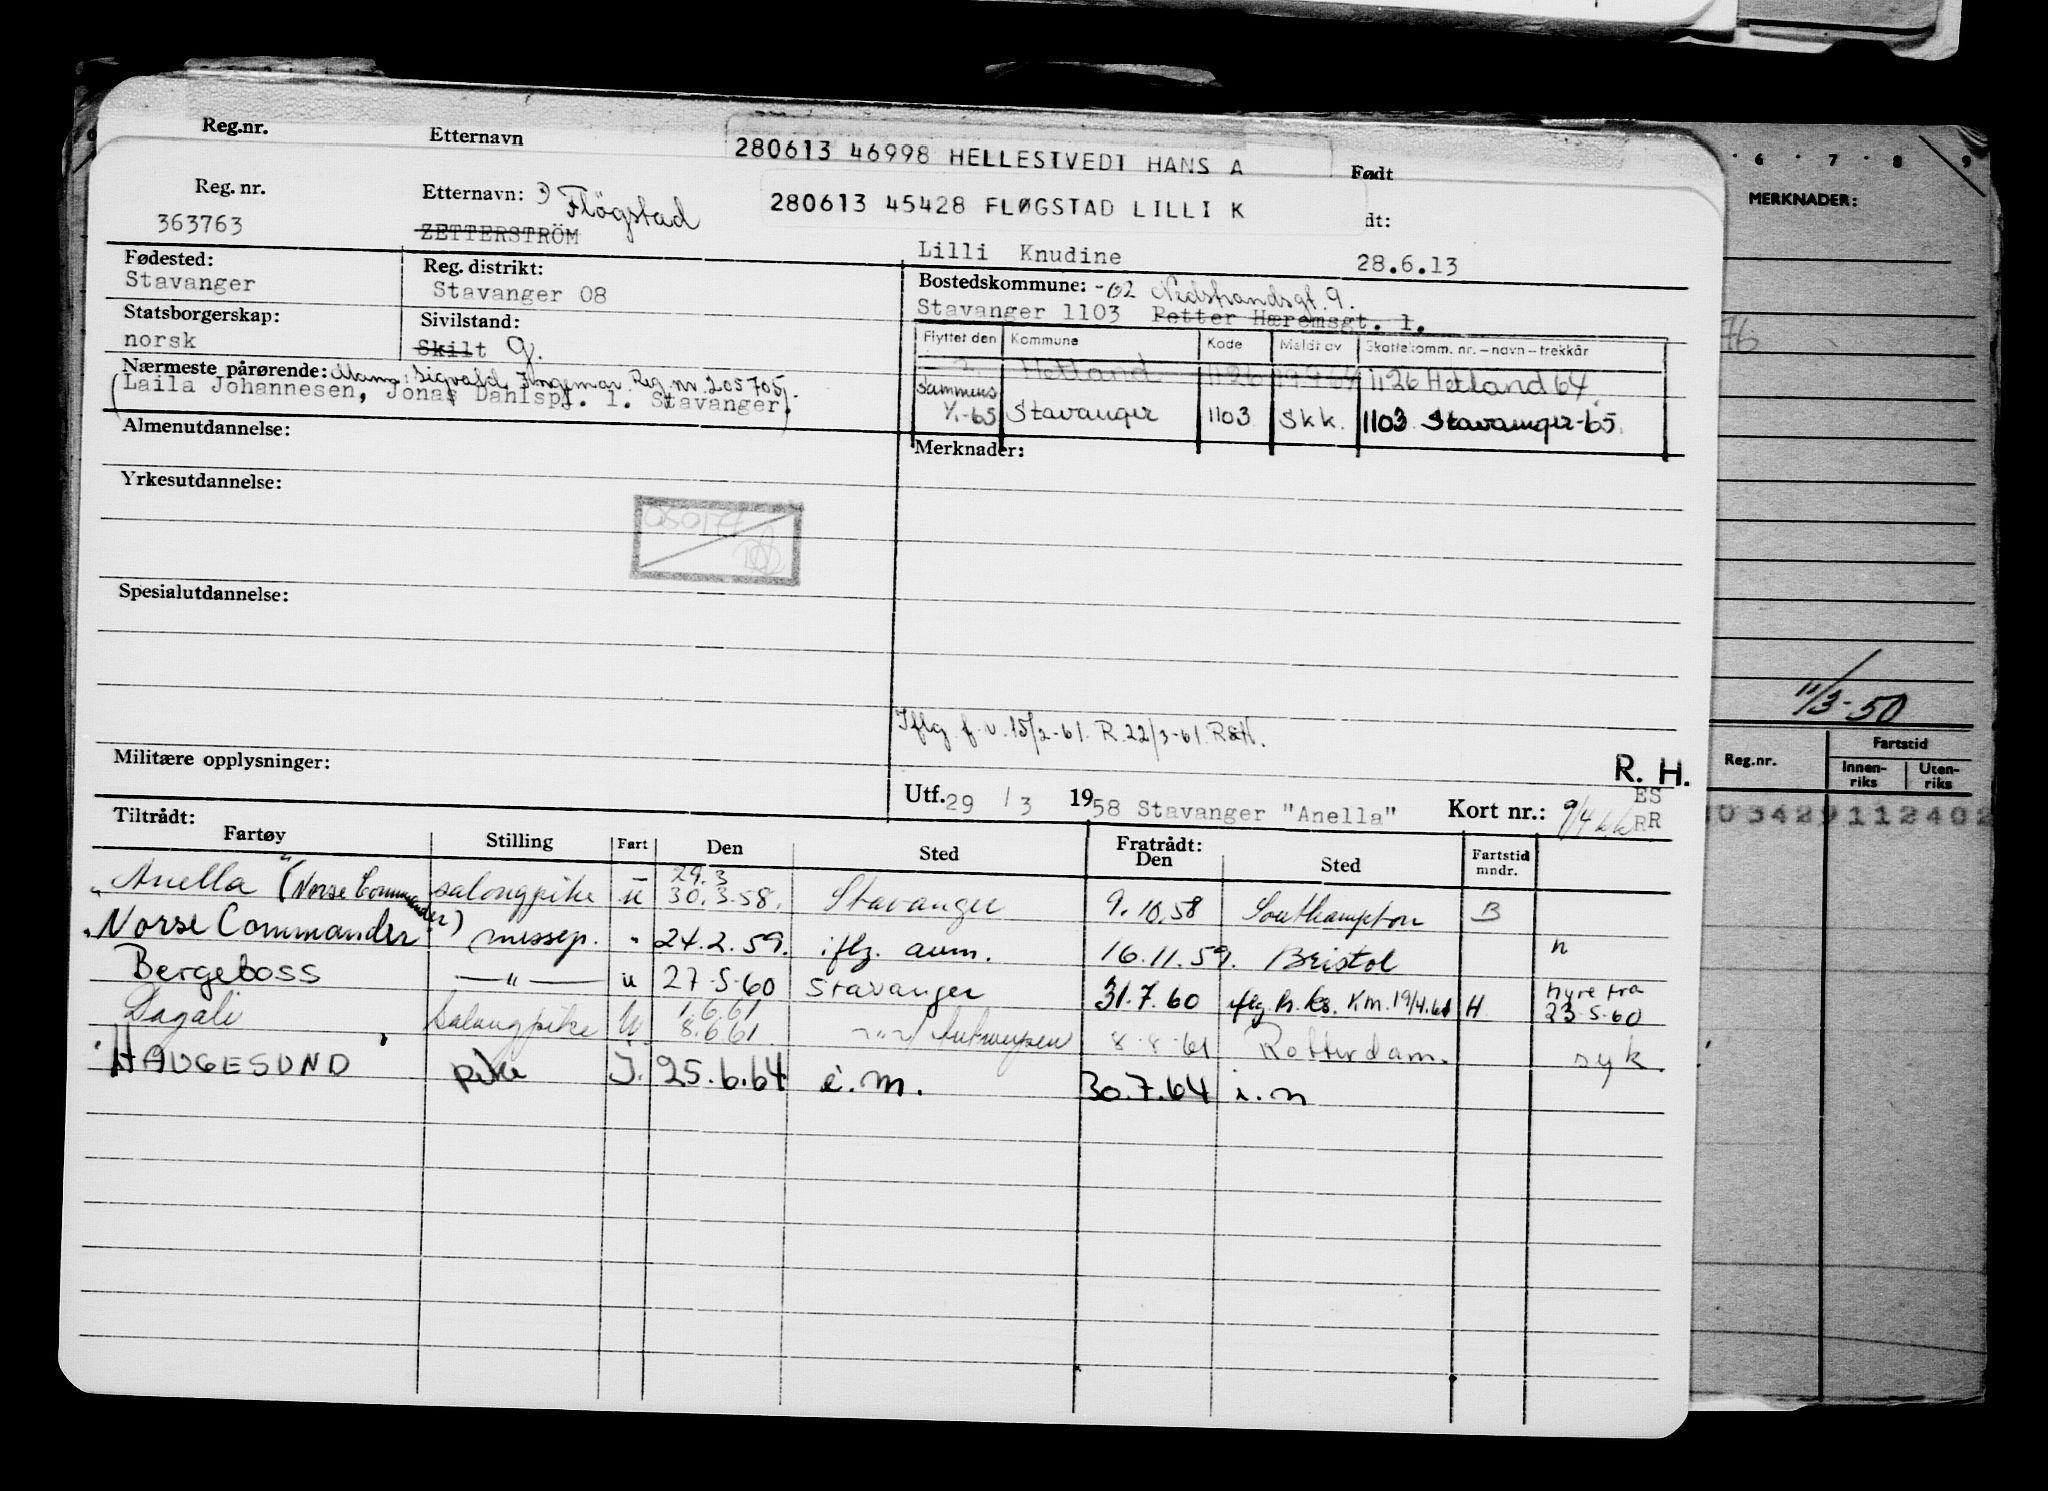 Reg.nr. Etternavn 280613 46998 HELLESTVEDT HANS A Født
Reg. nr. Etternavn: Fløgstad 280613 45428 FLØGSTAD LILLI K dt:
363763 ZETTERSTRÖM Lilli Knudine 28.6.13
Fødested: Reg. distrikt: Bostedskommune: -62 Nedstrandsgt. 9.
Stavanger Stavanger 08 Stavanger 1103 Petter Hæremsgt. 1.
Statsborgerskap: Sivilstand: Flyttet den Kommune Kode Meldt av Skattekomm. nr. – navn – trekkår
norsk Skilt g. Hetland 1126 1126 Hetland 64
Nærmeste pårørende: Mann: Sigvald Ingemar Reg. nr. 205705.
(Laila Johannesen, Jonas Dahlspl. 1. Stavanger.)
Sammens 1/1-65 Stavanger 1103 Skk. 1103 Stavanger-65.
Almenutdannelse: Merknader:
Yrkesutdannelse:
050177
Spesialutdannelse:
Iflg f. v. 15/2-61. R. 22/3-61. R&H.
Militære opplysninger: R. H.
Utf. 29 / 3 1958 Stavanger "Anella" Kort nr.: 9/4 ES RR
Tiltrådt: Fratrådt:
Fartøy Stilling Fart Den Sted Den Sted Fartstid mndr.
Anella (Norse Commander) salongpike u 29.3 30.3.58. Stavanger 9.10.58 Southampton B
"Norse Commander" messep. " 24.2.59. iflg. aum. 16.11.59. Bristol n
Bergeboss —"— u 27.5.60 Stavanger 31.7.60 iflg h. ks. Km. 19/4.61 H hyre fra 23.5.60
Dagali Salongpike U 1.6.61 8.6.61 Antwerpen 8.8.61 Rotterdam. syk.
"HAUGESUND" pike I. 25.6.64 i.m. 30.7.64 i.n
6 · 7 · 8 9
MERKNADER:
76
11/3-50
Reg.nr. Fartstid
Innenriks Utenriks
03429112402